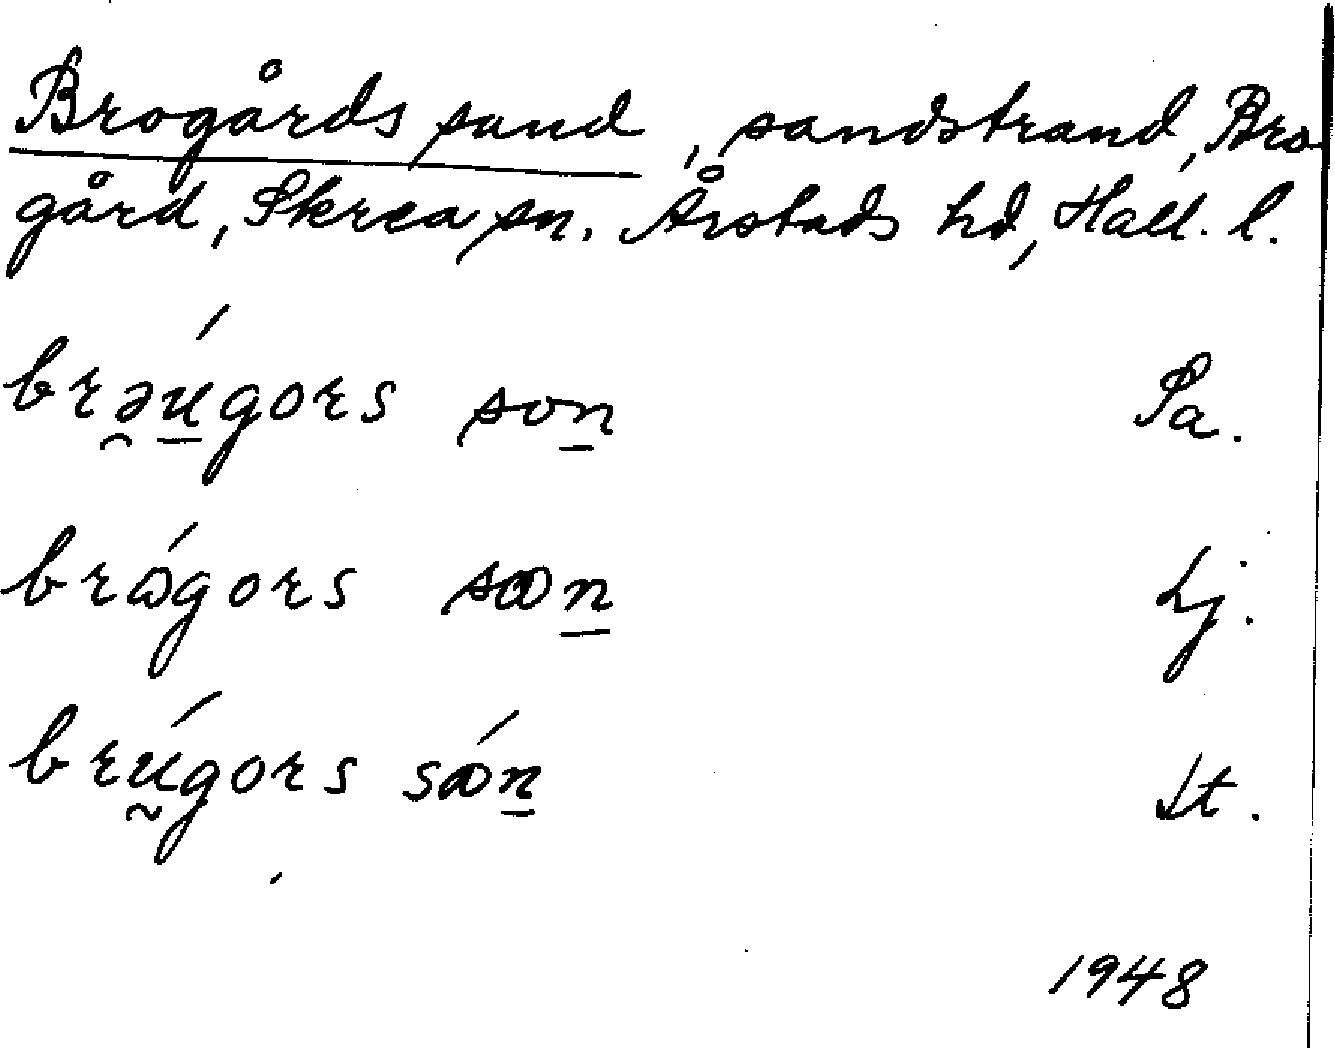 Brogårds sand, sandstrand, Bro
gård, Skrea sn. Årstads hd, Hall. l.
brə̯ú̲gors son̲ Pa.
brǿgors sɷn̲ Lj.
brṵ́gors sɷ́n̲ St.
1948